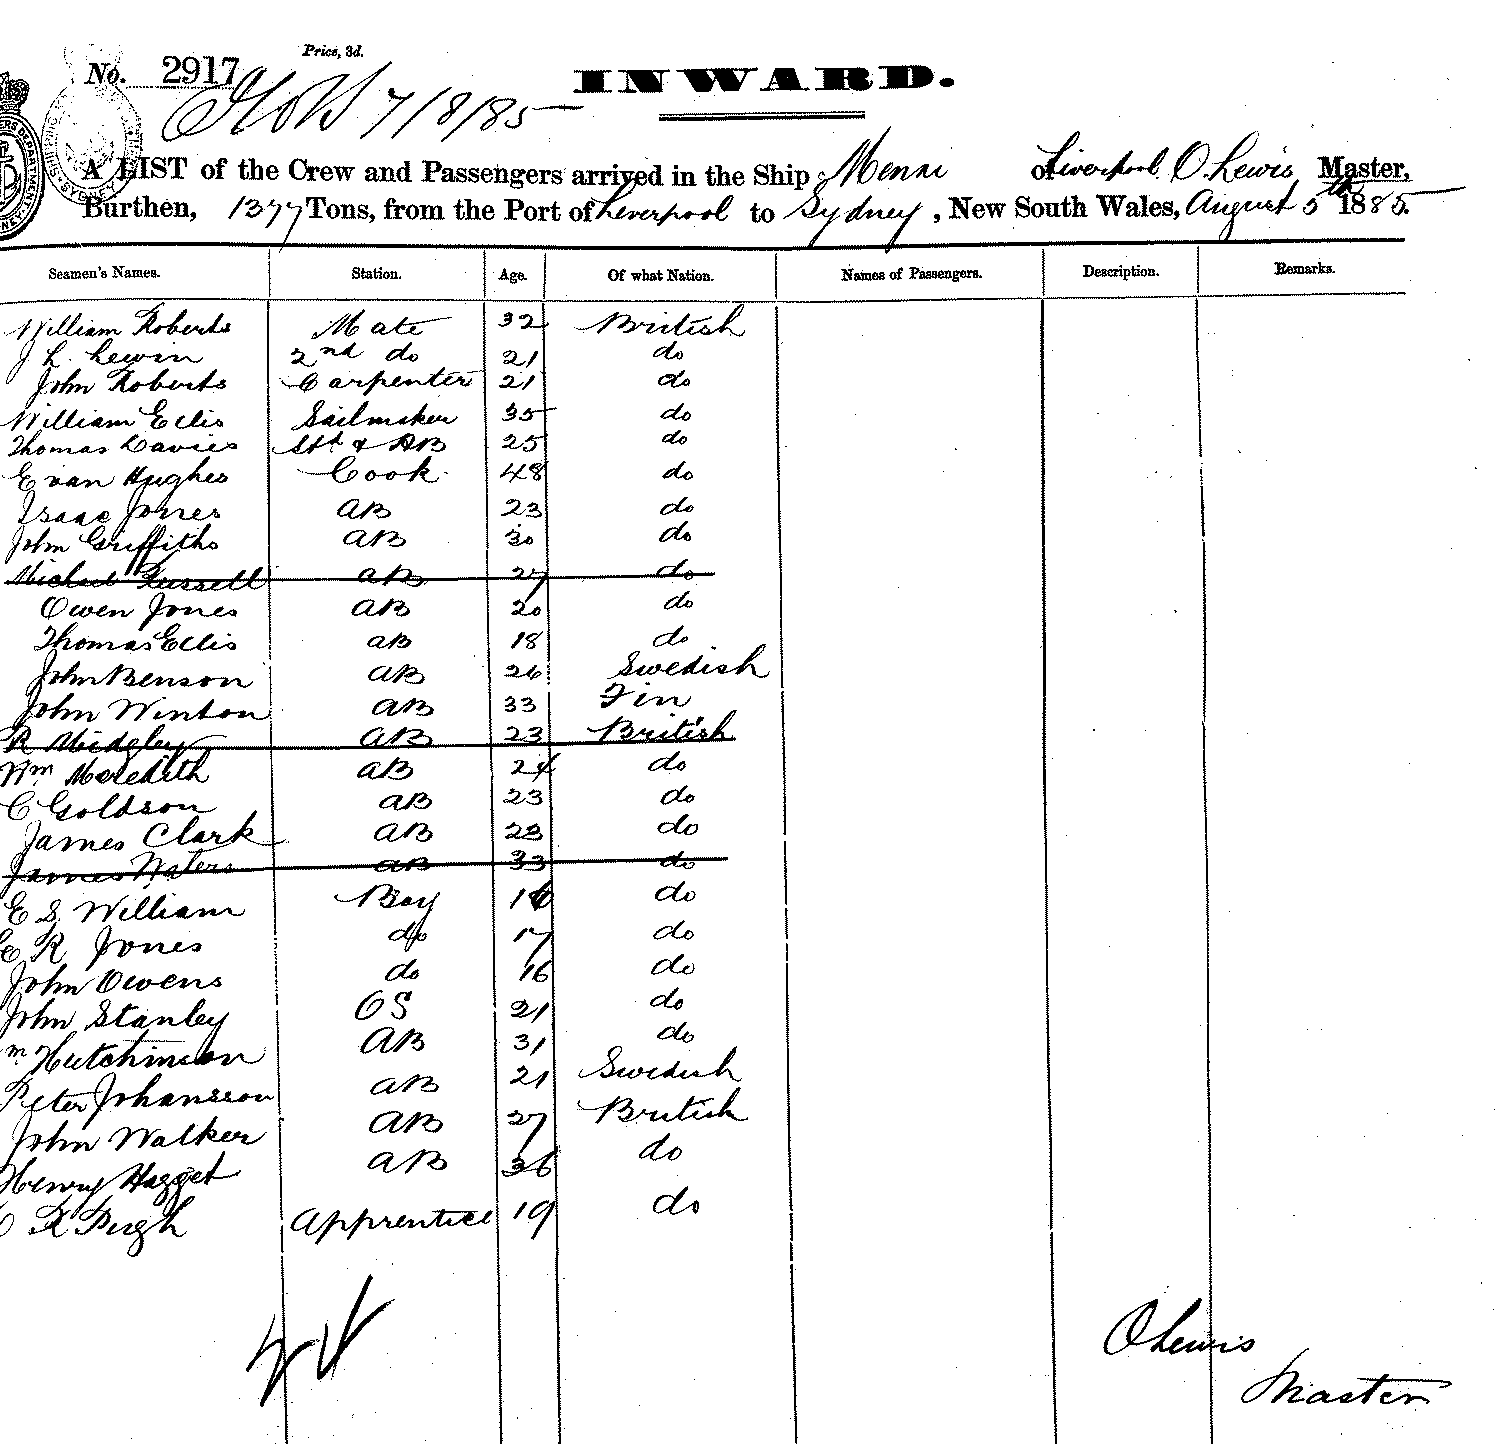 Price, 3d.
No. 2917
INWARD.
7/8/85
A LIST of the Crew and Passengers arrived in the Ship Menai of Liverpool O. Lewis, Master,
Burthen, 1377 Tons, from the Port of Liverpool to Sydney, New South Wales, August 5th 1885.
Seamen's Names. Station. Age. Of what Nation. Names of Passengers. Description. Remarks.
William Roberts Mate 32 British
J L. Lewin 2nd do 21 do
John Roberts Carpenter 21 do
William Ellis Sailmaker 35 do
Thomas Davies Std & AB 25 do
Evan Hughes Cook 48 do
Isaac Jones AB 23 do
John Griffiths AB 30 do
Michael Russell AB 27 do
Owen Jones AB 20 do
Thomas Ellis AB 18 do
John Benson AB 26 Swedish
John Winton AB 33 Fin
R Midgley AB 23 British
Wm Meredith AB 24 do
C Goldson AB 23 do
James Clark AB 23 do
James Waters AB 33 do
E S William Boy 16 do
E R Jones do 17 do
John Owens do 16 do
John Stanley OS 21 do
m Hutchinson AB 31 do
Peter Johansson AB 21 Swedish
John Walker AB 27 British
Henry Hagget AB 36 do
O R Pugh Apprentice 19 do
O Lewis
Master